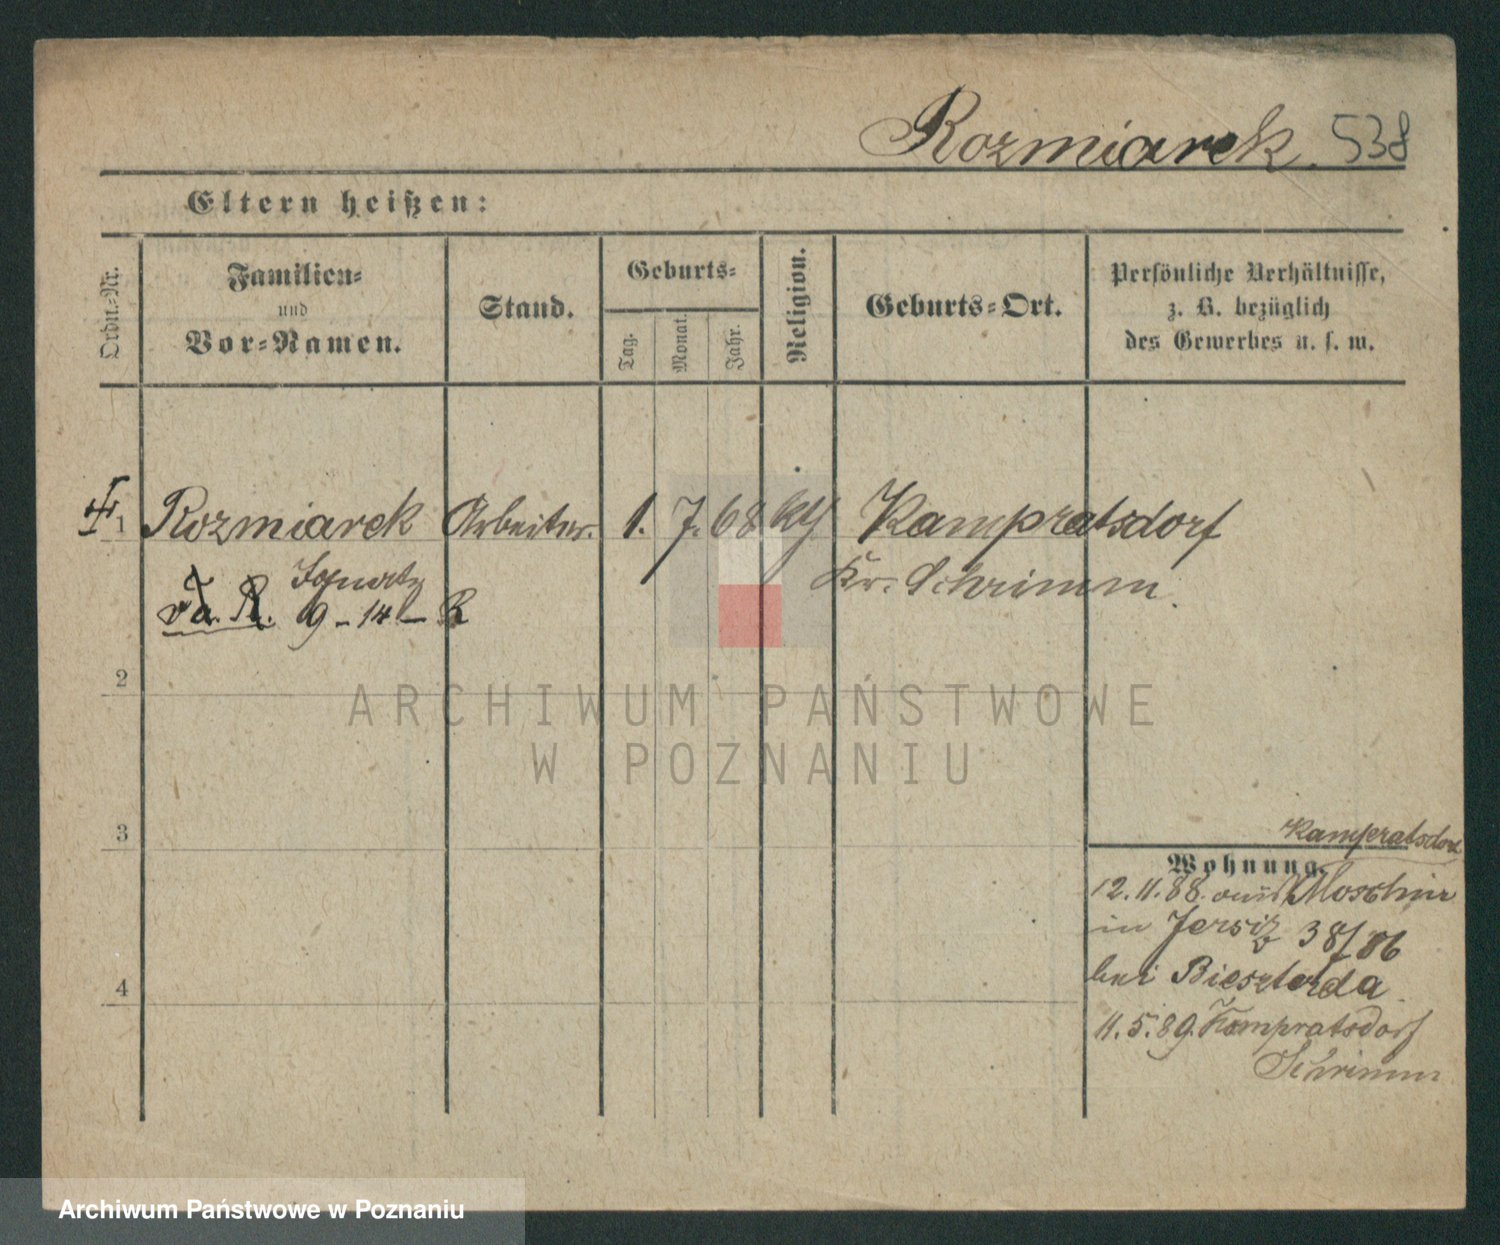 Rozmiarek. 538
Eltern heißen:
Ordn.-Nr.
Familien-
und
Vor-Namen.
Stand.
Geburts-
Tag.
Monat.
Jahr.
Religion.
Geburts-Ort.
Persönliche Verhältnisse,
z. B. bezüglich
des Gewerbes u. s. w.
1 Rozmiarek Arbeiter. 1. 7. 68 Kampratsdorf
Ignatz Kr. Schrimm.
9-14
2
3
4
Kampratsdorf
Wohnung.
12.11.88. aus Moschin
in Jersitz 38/86
bei Bieszterda
11.5.89. Kampratsdorf
Schrimm
ARCHIWUM PAŃSTWOWE
W POZNANIU
Archiwum Państwowe w Poznaniu